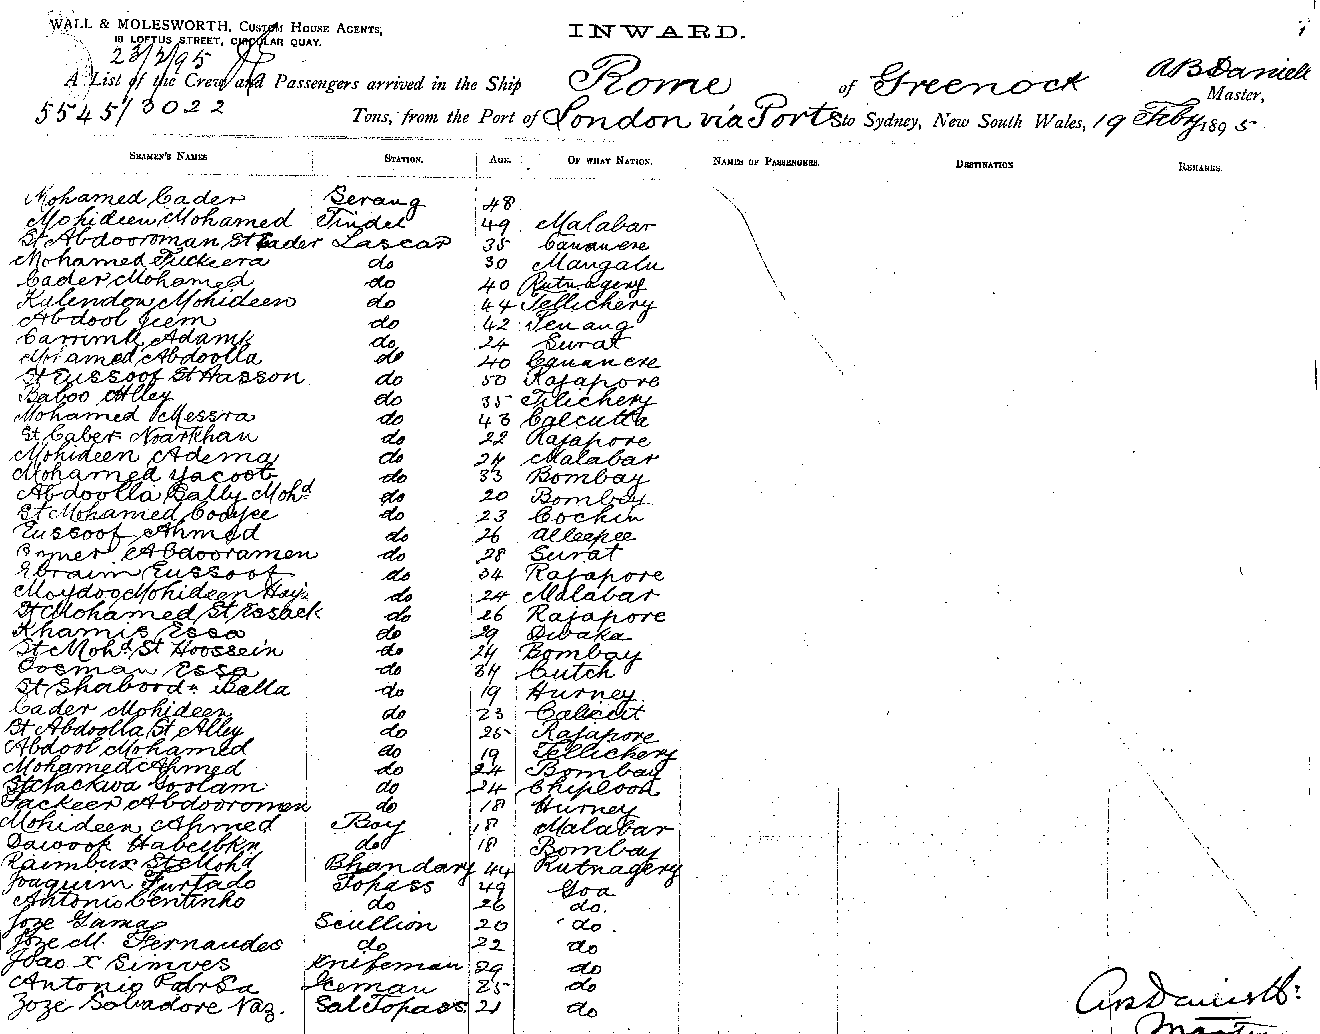 WALL & MOLESWORTH, CUSTOM HOUSE AGENTS,
18 LOFTUS STREET, CIRCULAR QUAY.
INWARD.
23/2/95
A List of the Crew and Passengers arrived in the Ship Rome of Greenock ABDaniell Master,
5545/3022 Tons, from the Port of London via Ports to Sydney, New South Wales, 19 Feby 1895
SEAMEN'S NAMES STATION. AGE. OF WHAT NATION. NAMES OF PASSENGERS. DESTINATION REMARKS.
Mohamed Cader Serang 48
Mohideen Mohamed Tindel 49 Malabar
St Abdooroman St Cader Lascar 35 Cananere
Mohamed Fuckeera do 30 Mangalu
Cader Mohamed do 40 Rutnagery
Kulendon Mohideen do 44 Tellichery
Abdool Jeem do 42 Penang
Carrimll Adamk do 24 Surat
Mohamed Abdoolla do 40 Cananere
St Eussoof St Hasson do 50 Rajapore
Baboo Alley do 35 Tilichery
Mohamed Messra do 43 Calcutta
St Caber Noarkhan do 22 Rajapore
Mohideen Adema do 24 Malabar
Mohamed Yacoob do 33 Bombay
Abdoolla Bally Mohd do 20 Bombay
St Mohamed Coojee do 23 Cochin
Eussoof Ahmed do 26 Alleepee
Omer Abdooramen do 28 Surat
Ebraim Eussoof do 34 Rajapore
Moydoo Mohideen Haji do 24 Malabar
St Mohamed St Essack do 26 Rajapore
Khamis Essa do 29 Dwaka
St Mohd St Hoossein do 24 Bombay
Oosman Essa do 34 Cutch
St Shabordn Balla do 19 Hurney
Cader Mohideen do 23 Calicut
St Abdoolla St Alley do 25 Rajapore
Abdool Mohamed do 19 Tellichery
Mohamed Ahmed do 24 Bombay
Goolam do 24 Chiploon
Fackeer Abdooromen do 18 Hurney
Mohideen Ahmed Boy 18 Malabar
Dawook Habeebkn do 18 Bombay
Raimbux St Mohd Bhandary 44 Rutnagery
Joaquim Furtado Topass 49 Goa
Antonio Centinho do 26 do.
Joze Gama Scullion 20 do.
Joze M. Fernandes do 22 do
Joao X Simoes Knifeman 29 do
Antonio Iceman 25 do
Zoze Salvadore Naz. Sal Topass 21 do
ABDaniell
Master